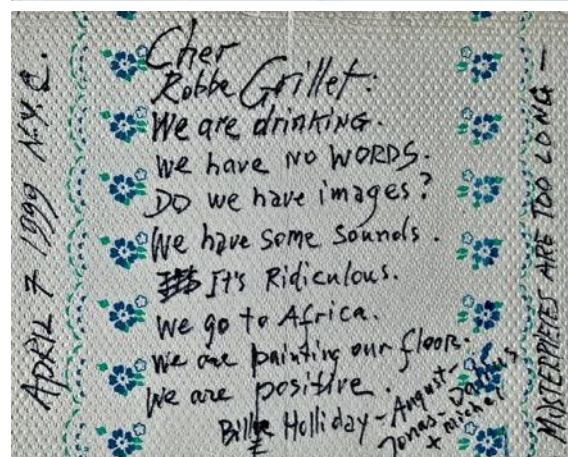 Cher
Robbe Grillet:
We are drinking.
We have NO WORDS.
DO we have images?
We have some sounds.
It's Ridiculous.
We go to Africa.
We are painting our floor.
We are positive.
Billie Holliday - August -
Jonas - Dalius
+ michel
APRIL 7 1999 N.Y.C.
MASTERPIECES ARE TOO LONG —